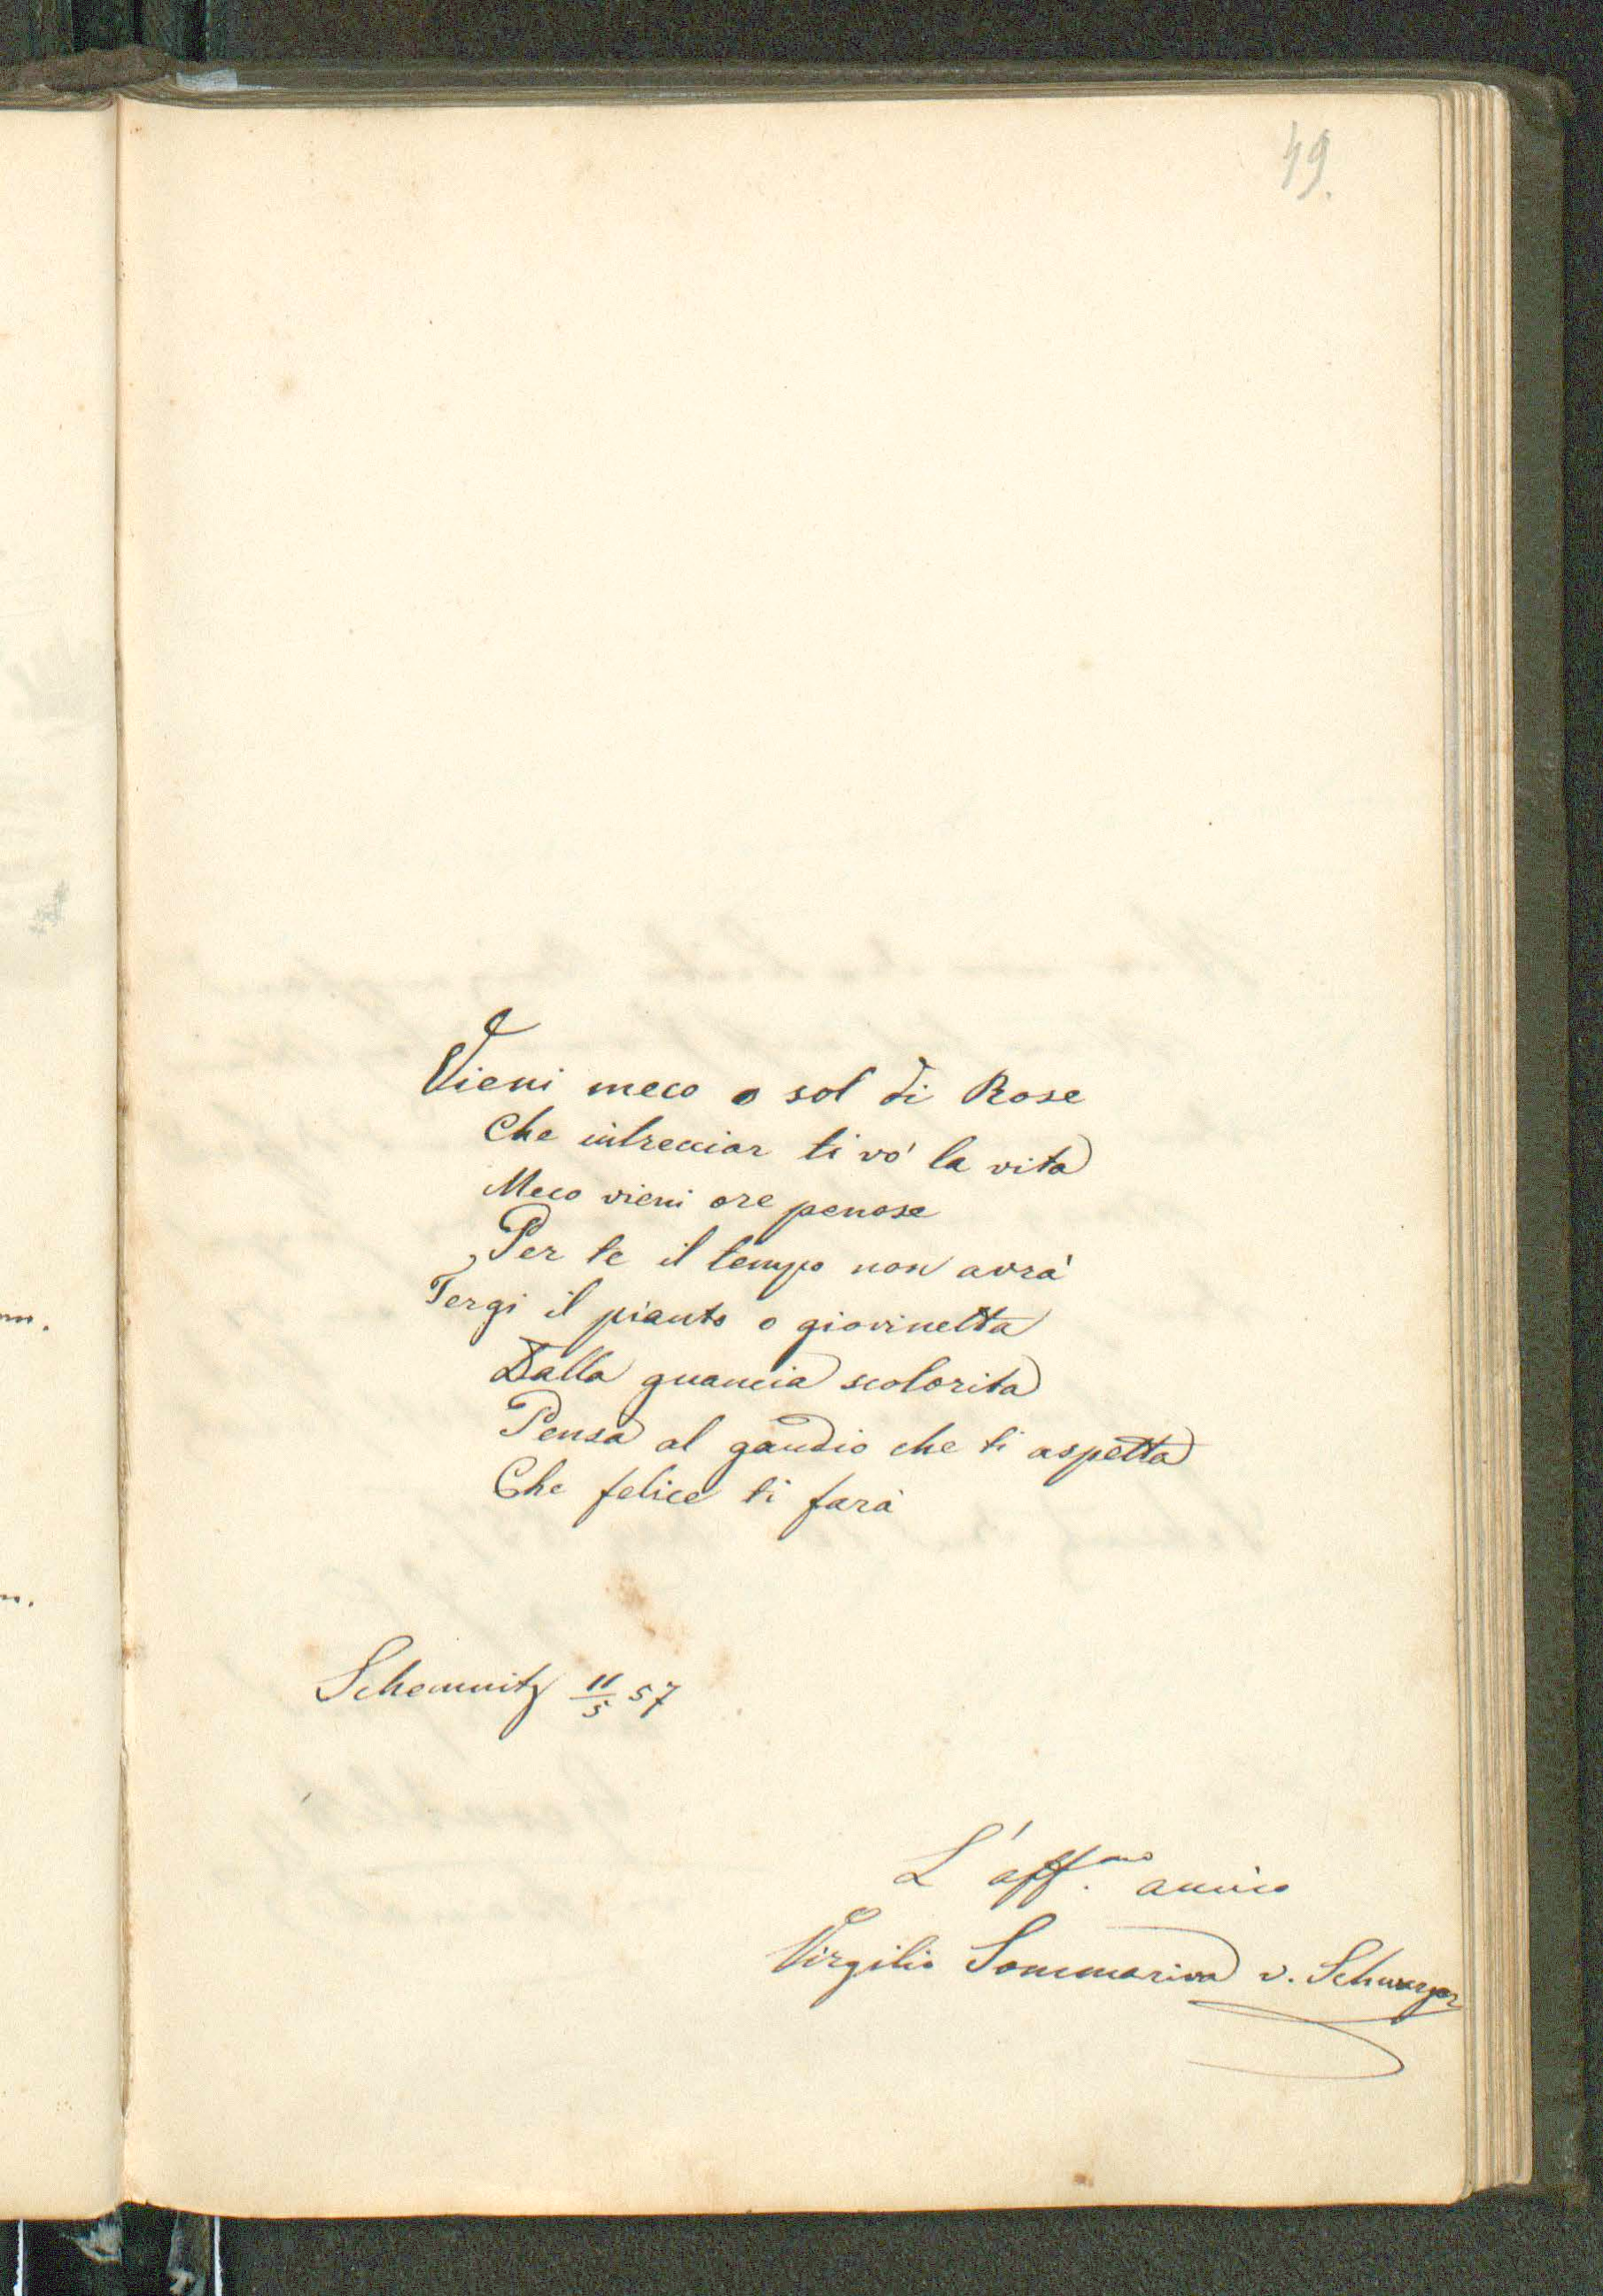 49.
Vieni meco o sol di Rose
Che intrecciar ti vo' la vita
Meco vieni ore penose
Per te il tempo non avrà
Tergi il pianto o giovinetta
Dalla guancia scolorita
Pensa al gaudio che ti aspetta
Che felice ti farà
Schemnitz 11/5 57
L'aff.mo amico
Virgilio Sommariva v.